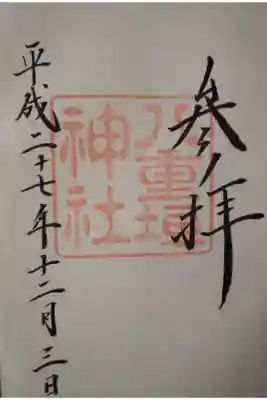 参拝
八重垣
神社
平成二十七年十二月三日